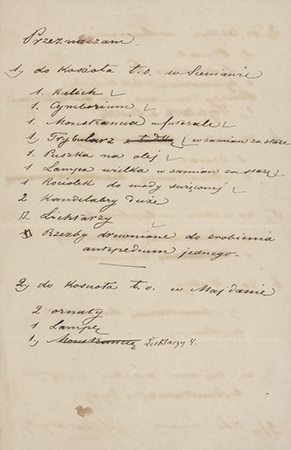 Przeznaczam
1, do Kościoła t.o. w Sieniawie
1. Kielich
1. Cymborium
1. Monstrancia w futerale
1, Trybularz z łódką w zamian za stare
1. Puszka na olej
1. Lampa wielka w zamian za starą
1. Kociołek do wody święconej
2 Kandelabry duże
12 Lichtarzy
Rzeźby drewniane do zrobienia
antypedium jednego.
2, do Kościoła t.o. w Majdanie
2 ornaty
1 Lampę
1, Monstrancię Lichtarzy 4.